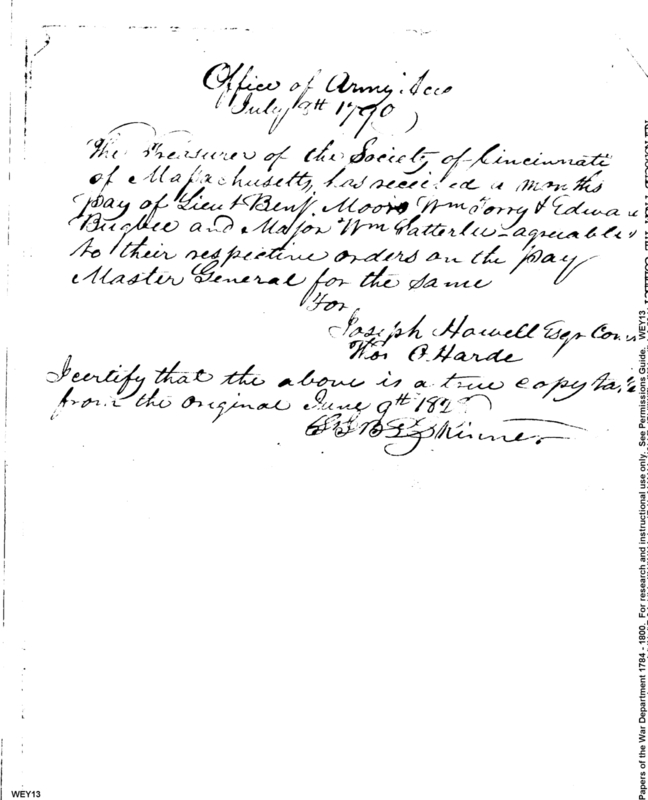 Office of Army Acco
July 9th 1790
The Treasurer of the Society of Cincinnati
of Massachusetts, has received a months
pay of Lieut Benj. Moore Wm Torry & Edward
Bugbee and Major Wm Satterlee agreable
to their respective orders on the pay
Master General for the same
For
Joseph Howell Esqr Com
Wor C. Harde
I certify that the above is a true copy
from the original June 9th 182
Skinner
Papers of the War Department 1784 - 1800. For research and instructional use only. See Permissions Guide. WEY13
WEY13